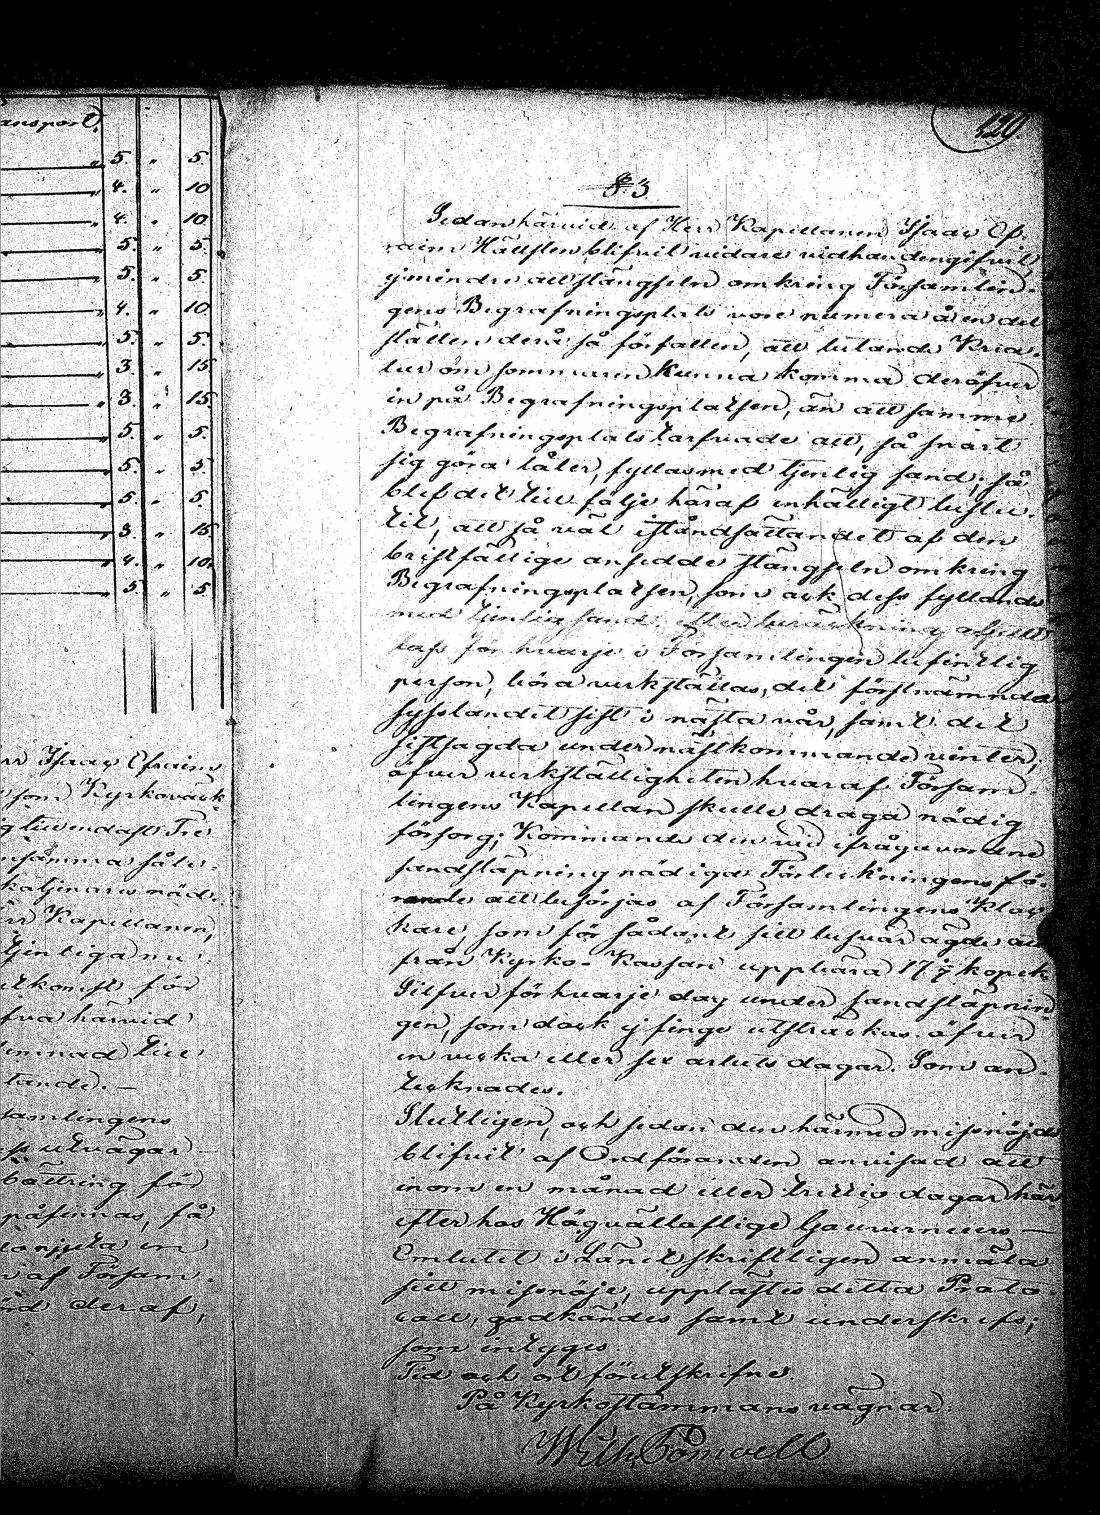 ansport).
" 5. " 5.
" 4. " 10
" 4. " 10.
" 5. " 5.
" 5. " 5.
" 4. " 10.
" 5. " 5.
" 3. " 15.
" 3. " 15.
" 5. " 5.
" 5. " 5.
" 5. " 5.
" 3. " 15.
" 4. " 10.
" 5. " 5.
rr Isaac Efraim
som Kyrkovärk
endast Tre
samma såle-
nöd-
rr Kapellanen,
tjenliga
för
härvid
lemnad till
tande.—
samlingens
utvägar
bättring för
påfinnas, så
en
af Försam-
deraf,
420
§ 3
Sedan härvid af Herr Kapellanen Isaac Ef-
raim Hällsten blifvit vidare vidhandengifvit,
ej mindre att stängseln omkring Församlin-
gens Begrafningsplats vore numera å en del
ställen derå så förfallen, att lutande Krea-
tur om sommaren kunna komma deröfver
in på Begrafningsplatsen, än att samme
Begrafningsplats tarfvade att, så snart
sig göra låter, fyllas med tjenlig sand; så
blef det till följe häraf enhälligt beslu-
tit, att så väl iståndsättandet af den
bristfällige ansedde stängseln omkring
Begrafningsplatsen, som ock dess fyllande
med tjenlig sand, efter beräkning af ett
lass för hvarje i Församlingen befintlig
person, böra verkställas, det förstnämnde
sysslandet sist i nästa vår, samt det
sistsagda under nästkommande vinter;
öfver verkställigheten hvaraf Försam-
lingens Kapellan skulle draga nödig
försorg; Kommande den vid ifrågavarande
sandsläpning nödiga Förteckningens fö-
rande att besörjas af Församlingens Kloc-
kare, som för sådant sitt besvär ägde att
från Kyrko-Kassan uppbära 17 1/7 kopek
Silfver för hvarje dag under sandsläpnin-
gen, som dock ej finge utsträckas öfver
en vecka eller sex arbets dagar. Som an-
tecknades.
Slutligen, och sedan den härmed missnöjde
blifvit af Ordföranden anvisad att
inom en månad eller trettio dagar här-
efter hos Högvällaflige Gouverneurs—
Embetet i Länet skriftligen anmäla
sitt missnöje, upplästes detta Proto-
coll, godkändes samt underskrefs;
som intyges.
Tid och ort förutskrifne.
På Kyrkostämmans vägnar:
Wilh.